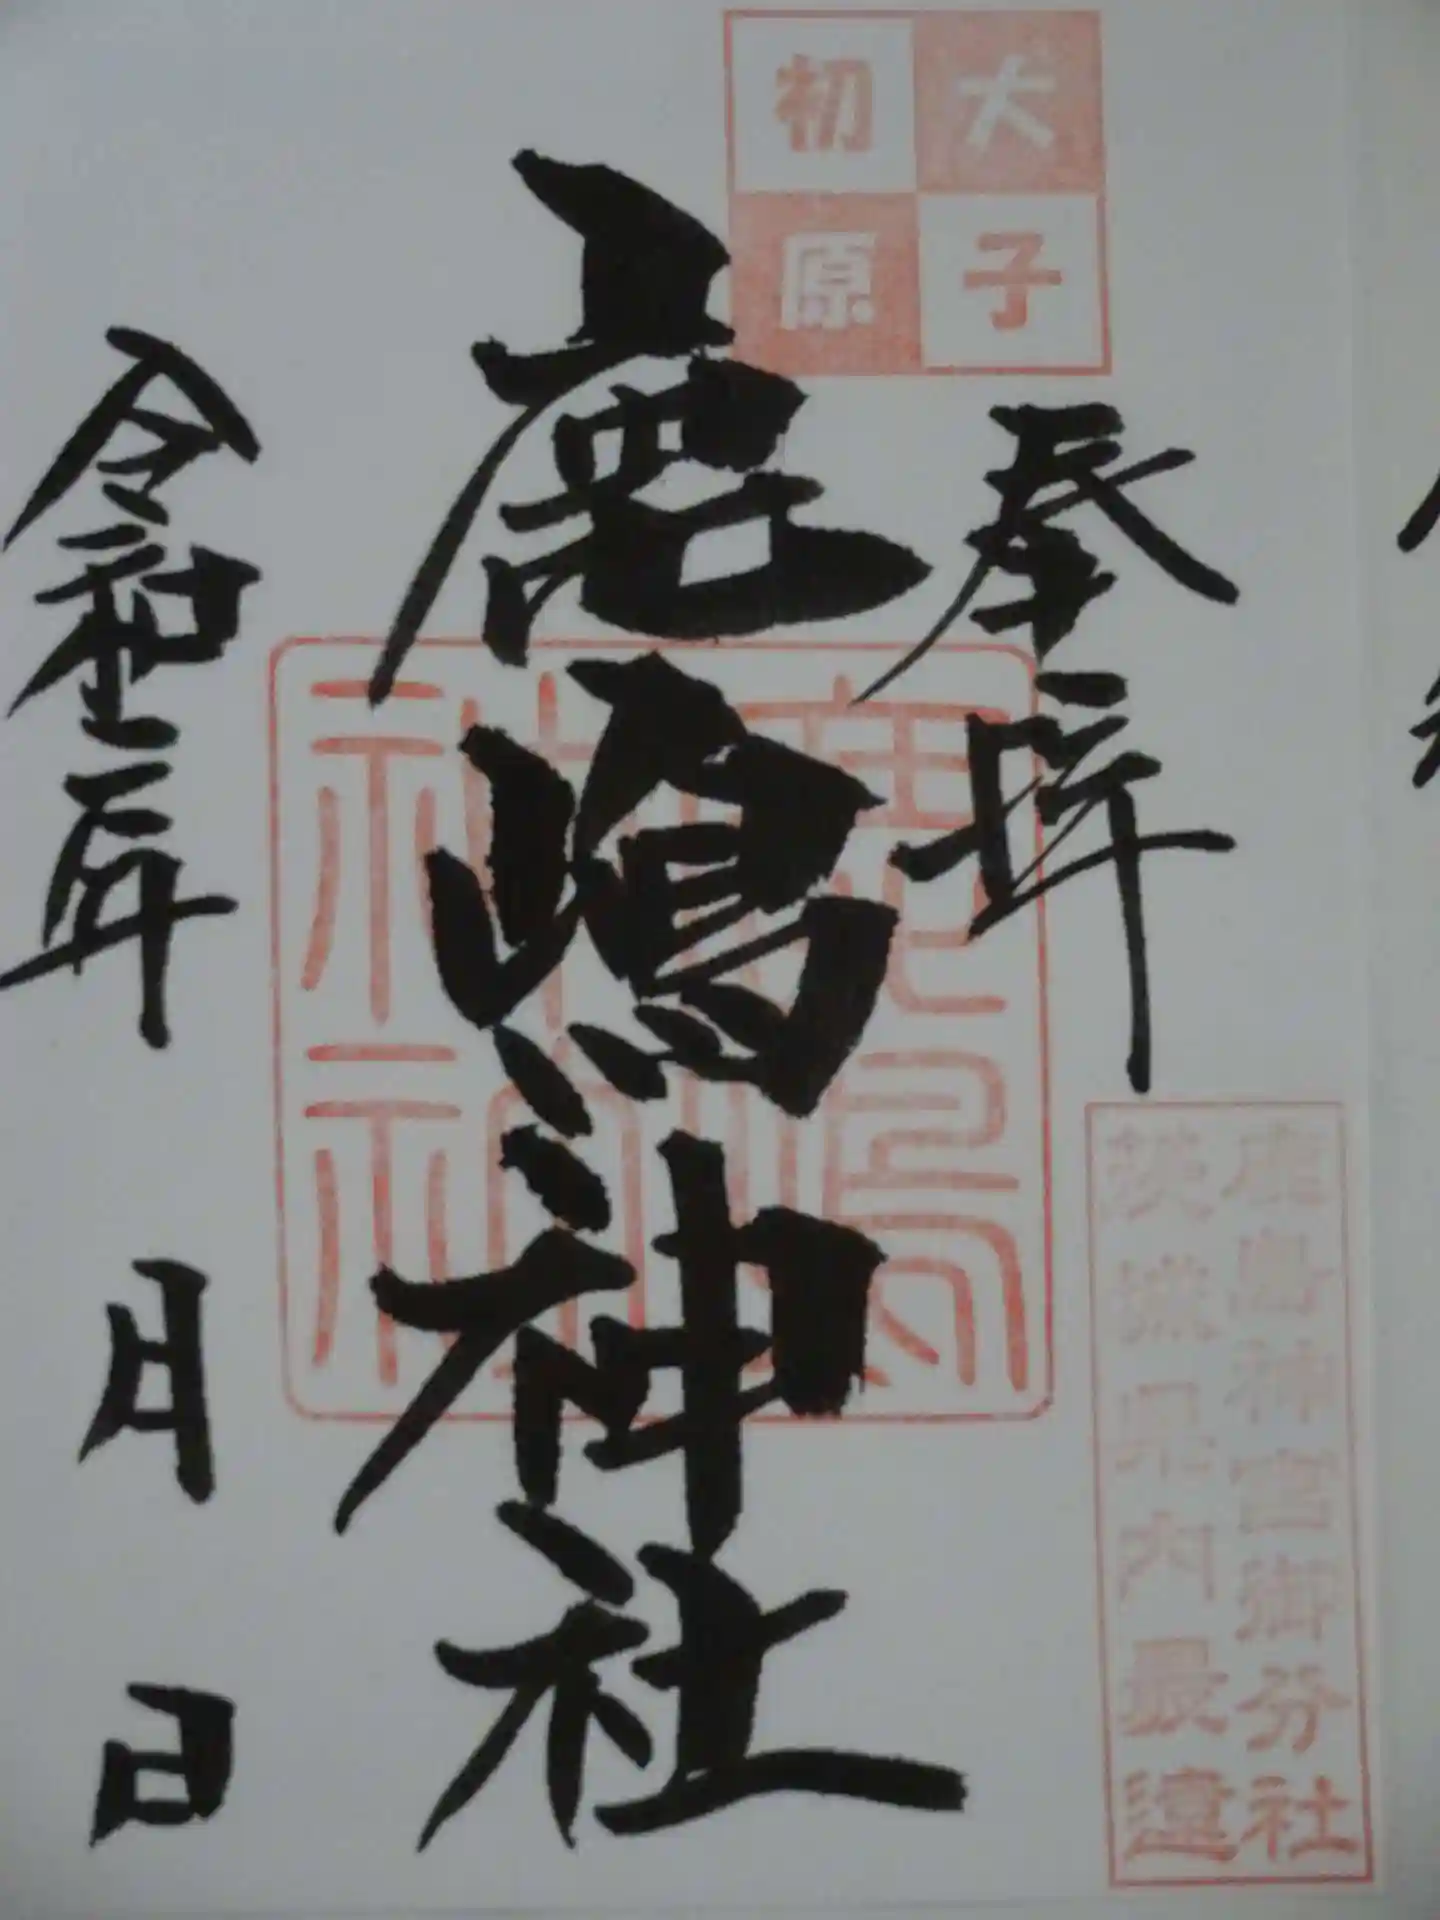 大子
初原
奉拝
鹿嶋神社
鹿嶋
神社
鹿島神宮御分社
茨城県内最遠
令和五年
月
日